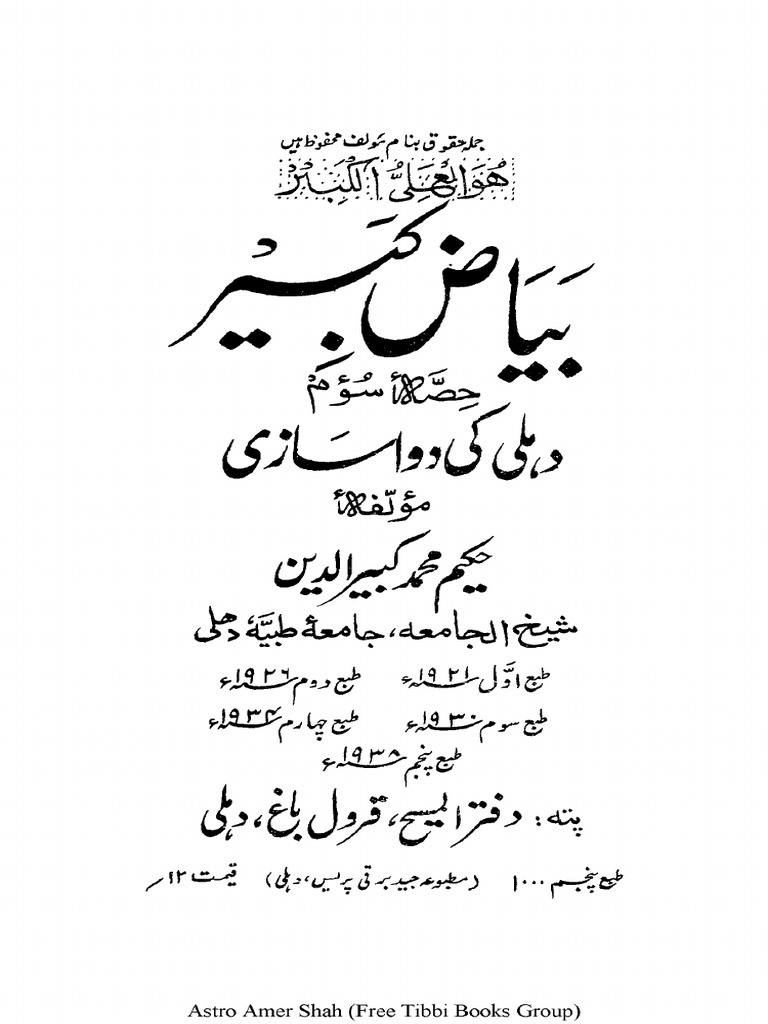 جملہ حقوق بنام مؤلف محفوظ ہیں
ھُوَ الۡعَلِیُّ الۡکَبِیۡرُ
بَیَاض کَبِیۡر
حِصَّۂ سُوُم
دہلی کی دواسازی
مؤلّفۂ
حکیم محمد کبیر الدین
شیخ الجامعہ، جامعۂ طبیّہ دہلی
طبع اوّل ۱۹۲۱ء طبع دوم ۱۹۲۶ء
طبع سوم ۱۹۳۰ء طبع چہارم ۱۹۳۴ء
طبع پنجم ۱۹۳۸ء
پتہ: دفتر المسیح، قرول باغ، دہلی
طبع پنجم ۱۰۰۰ (مطبوعہ جید برقی پریس، دہلی) قیمت ۱۲؍
Astro Amer Shah (Free Tibbi Books Group)